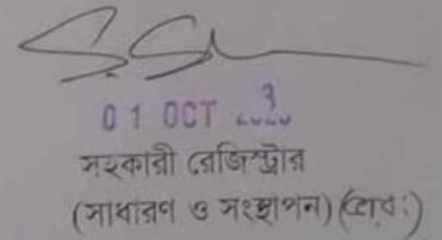 01 OCT
সহকারী রেজিস্ট্রার
(সাধারণ ও সংস্থাপন)